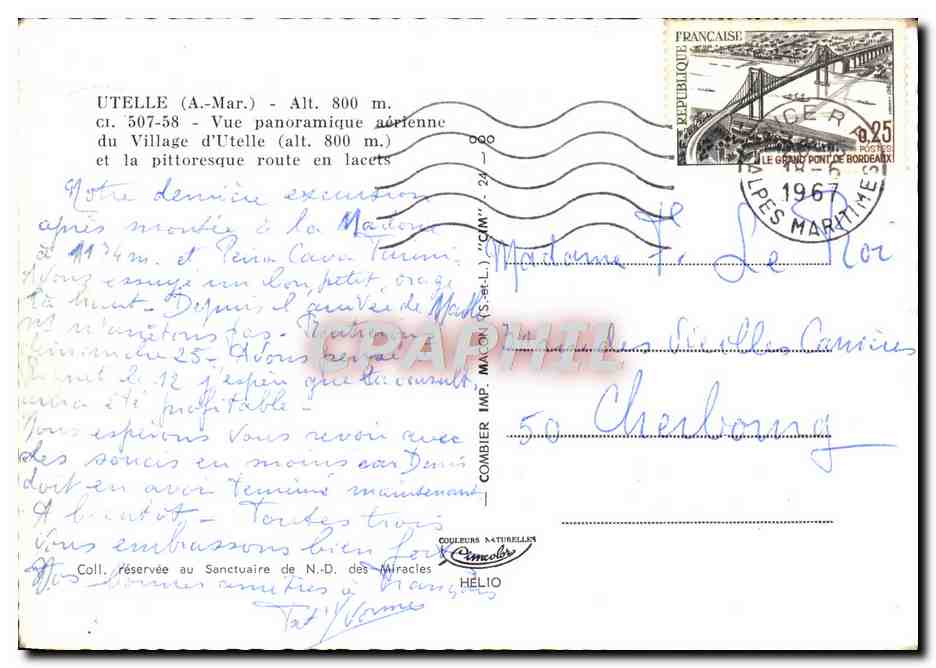 UTELLE (A.-Mar.) - Alt. 800 m.
CI. 507-58 - Vue panoramique aérienne
du Village d'Utelle (alt. 800 m.)
et la pittoresque route en lacets
REPUBLIQUE FRANÇAISE
0,25
POSTES
LE GRAND PONT DE BORDEAUX
NICE R.P.
1967
ALPES MARITIMES
Notre dernière excursion
après montée à la Madone
à 1174 m. et Peïra Cava Turini.
Nous essuyé un bon petit orage
là haut. Depuis l'arrivée de
n'arrêtons pas.
dimanche 25 - Avons
le 12 j'espère que la consult.
aura été profitable -
Nous espérons vous revoir avec
des soucis en moins car Denis
doit en avoir terminé maintenant
A bientôt - Toutes trois
vous embrassons bien fort
Nos bonnes amitiés à François
Yvonne
Madame F. Le Roi
rue des Vieilles Carrières
50 Cherbourg
COMBIER IMP. MACON (S.-et-L.) "CIM" - 24 - 008
CRAPHIL
COULEURS NATURELLES
Cimcolor
HELIO
Coll. réservée au Sanctuaire de N.-D. des Miracles